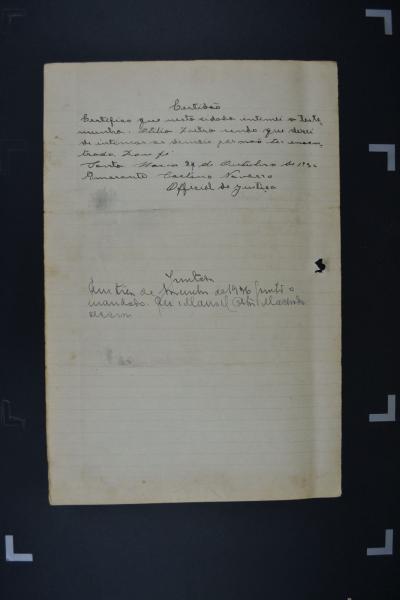 Certidão
Certifico que nesta cidade intimei a teste
munha, Castro sendo que deixei
de intimar as demais por não ter encon-
trado. Dou fé.
Santa Maria 29 de Outubro de 193
Amarante Caetano Navarro
Official de Justiça
Juntada
de de 1936 junto o
mandado. Eu, Manoel Machado